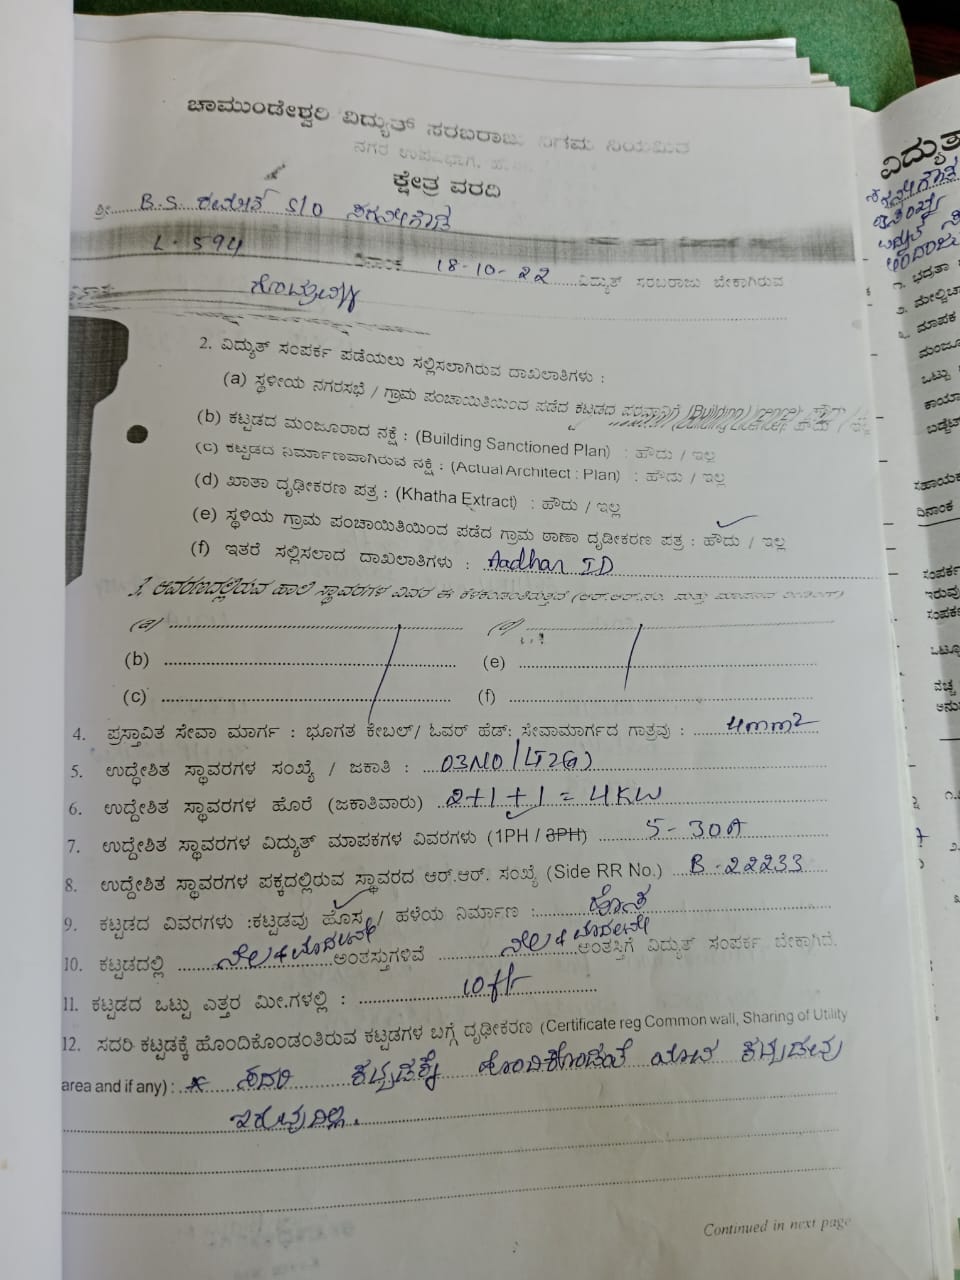 ಚಾಮುಂಡೇಶ್ವರಿ ವಿದ್ಯುತ್ ಸರಬರಾಜು ನಿಗಮ ನಿಯಮಿತ
ನಗರ ಉಪವಿಭಾಗ,
ಕ್ಷೇತ್ರ ವರದಿ
ಶ್ರೀ B.S. S/O
L. 594
ದಿನಾಂಕ 18-10-22 ವಿದ್ಯುತ್ ಸರಬರಾಜು ಬೇಕಾಗಿರುವ
2. ವಿದ್ಯುತ್ ಸಂಪರ್ಕ ಪಡೆಯಲು ಸಲ್ಲಿಸಲಾಗಿರುವ ದಾಖಲಾತಿಗಳು :
(a) ಸ್ಥಳೀಯ ನಗರಸಭೆ / ಗ್ರಾಮ ಪಂಚಾಯಿತಿಯಿಂದ ಪಡೆದ ಕಟ್ಟಡದ ಪರವಾನಿಗೆ (Building Licence): ಹೌದು / ಇಲ್ಲ
(b) ಕಟ್ಟಡದ ಮಂಜೂರಾದ ನಕ್ಷೆ : (Building Sanctioned Plan) : ಹೌದು / ಇಲ್ಲ
(c) ಕಟ್ಟಡದ ನಿರ್ಮಾಣವಾಗಿರುವ ನಕ್ಷೆ : (Actual Architect : Plan) : ಹೌದು / ಇಲ್ಲ
(d) ಖಾತಾ ದೃಢೀಕರಣ ಪತ್ರ : (Khatha Extract) : ಹೌದು / ಇಲ್ಲ
(e) ಸ್ಥಳಿಯ ಗ್ರಾಮ ಪಂಚಾಯಿತಿಯಿಂದ ಪಡೆದ ಗ್ರಾಮ ಠಾಣಾ ದೃಡೀಕರಣ ಪತ್ರ : ಹೌದು / ಇಲ್ಲ
(f) ಇತರೆ ಸಲ್ಲಿಸಲಾದ ದಾಖಲಾತಿಗಳು : Aadhar ID
3. ಆವರಣದಲ್ಲಿರುವ ಹಾಲಿ ಸ್ಥಾವರಗಳ ವಿವರ ಈ ಕೆಳಕಂಡಂತಿರುತ್ತದೆ
(a) (d)
(b) (e)
(c) (f)
4. ಪ್ರಸ್ತಾವಿತ ಸೇವಾ ಮಾರ್ಗ : ಭೂಗತ ಕೇಬಲ್/ ಓವರ್ ಹೆಡ್: ಸೇವಾಮಾರ್ಗದ ಗಾತ್ರವು : 4mm2
5. ಉದ್ದೇಶಿತ ಸ್ಥಾವರಗಳ ಸಂಖ್ಯೆ / ಜಕಾತಿ : 03NO/LT2(a)
6. ಉದ್ದೇಶಿತ ಸ್ಥಾವರಗಳ ಹೊರೆ (ಜಕಾತಿವಾರು) 2+1+1 = 4KW
7. ಉದ್ದೇಶಿತ ಸ್ಥಾವರಗಳ ವಿದ್ಯುತ್ ಮಾಪಕಗಳ ವಿವರಗಳು (1PH / 3PH) 5-30A
8. ಉದ್ದೇಶಿತ ಸ್ಥಾವರಗಳ ಪಕ್ಕದಲ್ಲಿರುವ ಸ್ಥಾವರದ ಆರ್.ಆರ್. ಸಂಖ್ಯೆ (Side RR No.) B-22233
9. ಕಟ್ಟಡದ ವಿವರಗಳು :ಕಟ್ಟಡವು ಹೊಸ / ಹಳೆಯ ನಿರ್ಮಾಣ : ಹೊಸ
10. ಕಟ್ಟಡದಲ್ಲಿ ನೆಲ & ಮೊದಲನೇ ಅಂತಸ್ತುಗಳಿವೆ ನೆಲ & ಮೊದಲನೇ ಅಂತಸ್ತಿಗೆ ವಿದ್ಯುತ್ ಸಂಪರ್ಕ ಬೇಕಾಗಿದೆ.
11. ಕಟ್ಟಡದ ಒಟ್ಟು ಎತ್ತರ ಮೀ.ಗಳಲ್ಲಿ : 10ft
12. ಸದರಿ ಕಟ್ಟಡಕ್ಕೆ ಹೊಂದಿಕೊಂಡಂತಿರುವ ಕಟ್ಟಡಗಳ ಬಗ್ಗೆ ದೃಢೀಕರಣ (Certificate reg Common wall, Sharing of Utility
area and if any) : ಸದರಿ ಕಟ್ಟಡಕ್ಕೆ ಹೊಂದಿಕೊಂಡಂತೆ ಯಾವ ಕಟ್ಟಡವು
ಇರುವುದಿಲ್ಲ.
Continued in next page